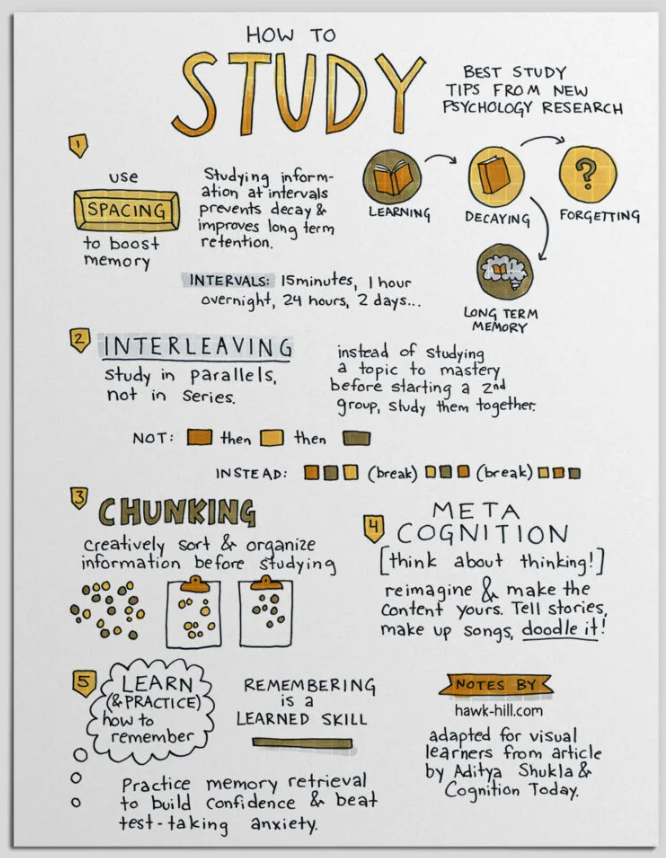 HOW TO
STUDY
BEST STUDY
TIPS FROM NEW
PSYCHOLOGY RESEARCH
1
use
SPACING
to boost
memory
Studying inform-
ation at intervals
prevents decay &
improves long term
retention.
LEARNING
DECAYING
?
FORGETTING
LONG TERM
MEMORY
INTERVALS: 15 minutes, 1 hour
overnight, 24 hours, 2 days...
2
INTERLEAVING
study in parallels,
not in series.
instead of studying
a topic to mastery
before starting a 2nd
group, study them together.
NOT: then then
INSTEAD: (break) (break)
3
CHUNKING
creatively sort & organize
information before studying
4
META
COGNITION
[think about thinking!]
reimagine & make the
content yours. Tell stories,
make up songs, doodle it!
5
LEARN
(& PRACTICE)
how to
remember
REMEMBERING
is a
LEARNED SKILL
Practice memory retrieval
to build confidence & beat
test-taking anxiety.
NOTES BY
hawk-hill.com
adapted for visual
learners from article
by Aditya Shukla &
Cognition Today.